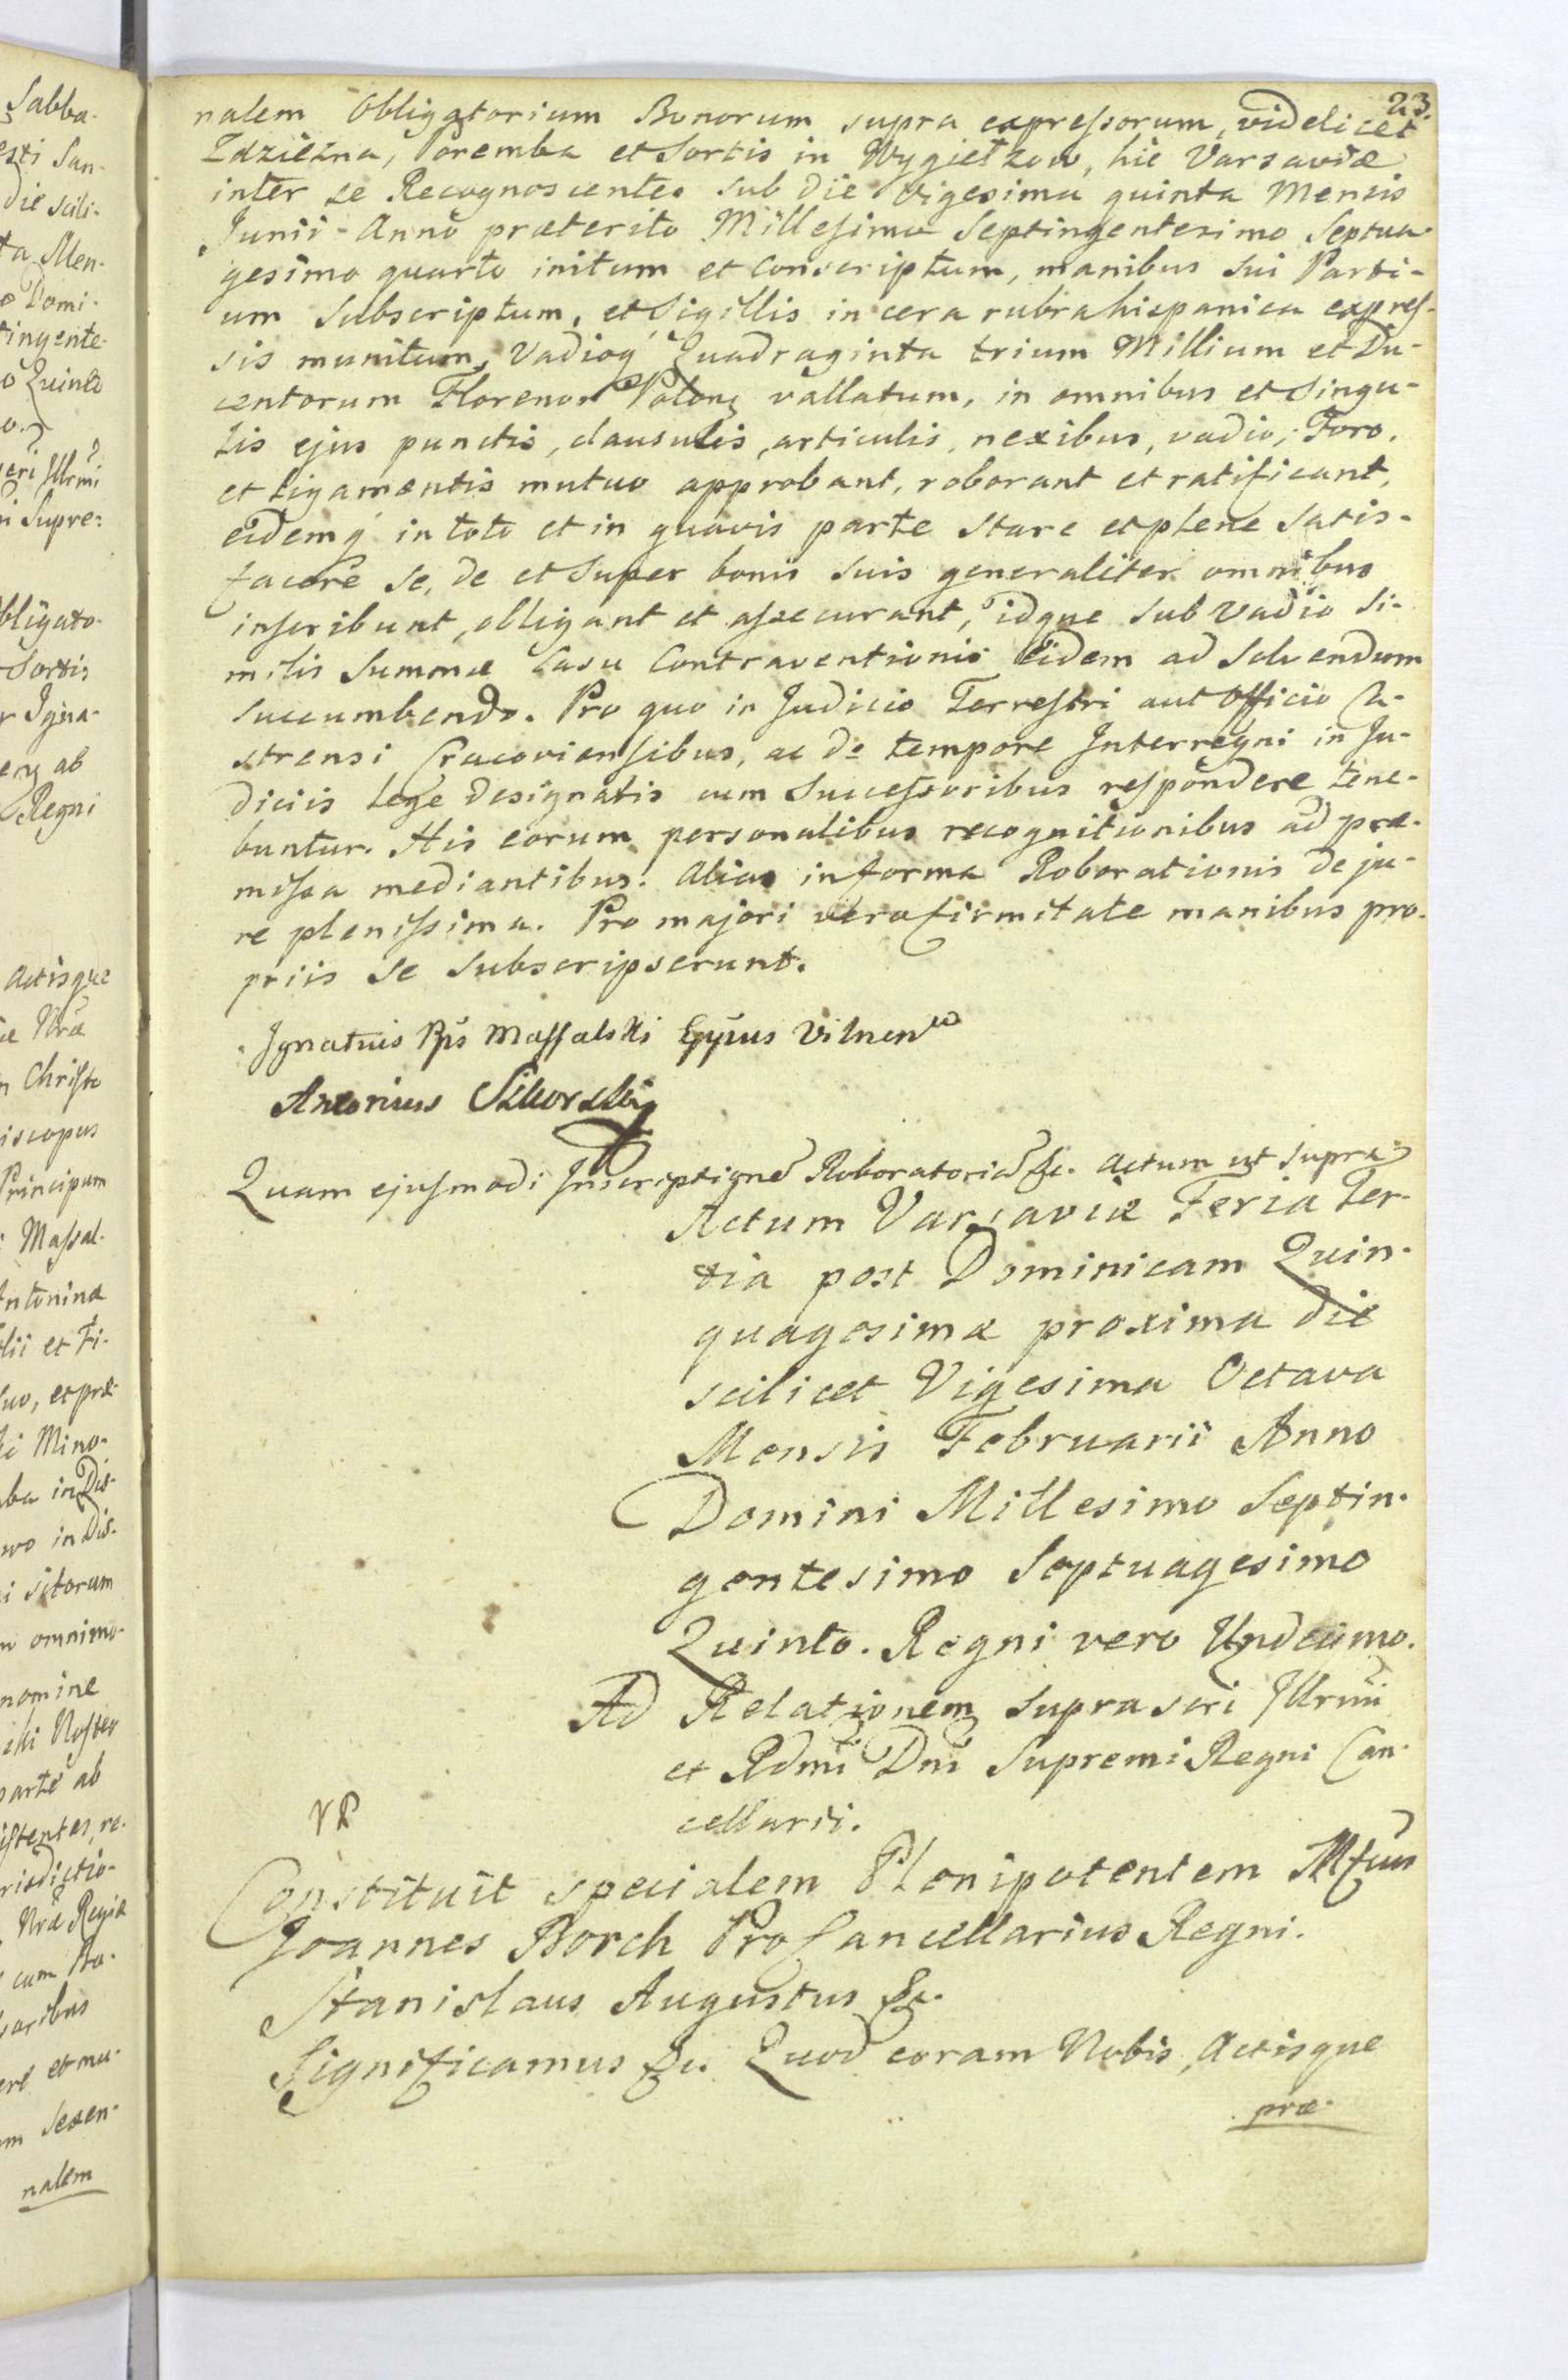 23.
nalem Obligatorium Bonorum supra expressorum, videlicet
Zdzieżna, Poremba et Sortis in Wygiełzow, hic Varsaviæ
inter se Recognoscentes sub die Vigesima quinta Mensis
Junii Anno præterito Millesimo Septingentesimo Septua-
gesimo quarto initum et conscriptum, manibus sui Parti-
um Subscriptum, et Sigillis in cera rubra hispanica expres-
sis munitum, Vadioq́ Quadraginta trium Millium et Du-
centorum Florenor Polonę vallatum, in omnibus et singu-
lis ejus punctis, clausulis, articulis, nexibus, vadio, Foro,
et ligamentis mutuo approbant, roborant et ratificant,
eidemq́ in toto et in quavis parte stare et plene satis-
facere se, de et super bonis suis generaliter omnibus
inscribunt, obligant et assecurant, idque sub Vadio si-
milis Summæ casu Contraventionis eidem ad solvendum
succumbendo. Pro quo in Judicio Terrestri aut Officio Ca-
strensi Cracoviensibus, ac de tempore Interregni in Ju-
diciis lege designatis cum Successoribus respondere tene-
buntur. His eorum personalibus recognitionibus ad præ-
missa mediantibus. Alias in forma Roborationis de ju-
re plenissima. Pro majori vero firmitate manibus pro-
priis se subscripserunt.
Ignatius Massalski Eppus Vilnen
Antonius Sikorski
Quam ejusmodi Inscriptione Roboratoria &c. Actum ut supra
Actum Varsaviæ Feria Ter-
tia post Dominicam Quin-
quagesimæ proxima die
scilicet Vigesima Octava
Mensis Februarii Anno
Domini Millesimo Septin-
gentesimo Septuagesimo
Quinto. Regni vero Undecimo.
Ad Relationem suprascri Illrmi
et Rdmi Dni Supremi Regni Can-
cellarii.
Constituit specialem Plenipotentem Mfcus
Joannes Borch Pro Cancellarius Regni.
Stanislaus Augustus &c.
Significamus &c. Quod coram Nobis, Actisque
præ-